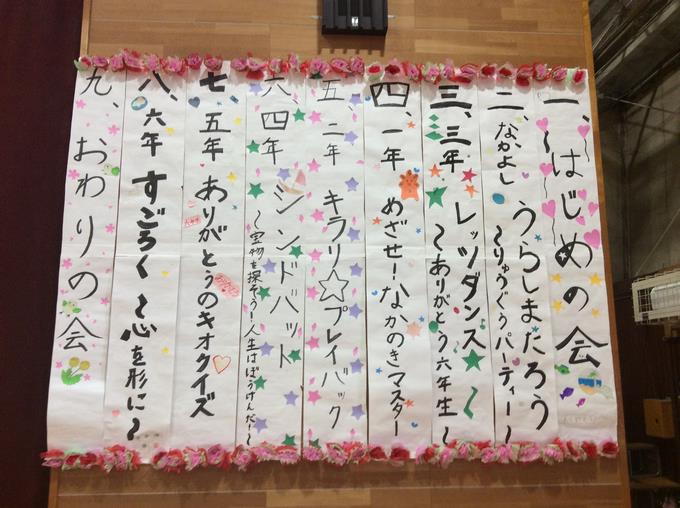 一、はじめの会
二、なかよし うらしまたろう
〜りゅうぐうパーティー〜
三、三年 レッツダンス
〜ありがとう六年生〜
四、一年 めざせ!なかのきマスター
五、二年 キラリ☆プレイバック
六、四年 シンドバット
〜宝物を探そう!人生はぼうけんだ!〜
七、五年 ありがとうのキオクイズ
八、六年 すごろく 〜心を形に〜
九、おわりの会